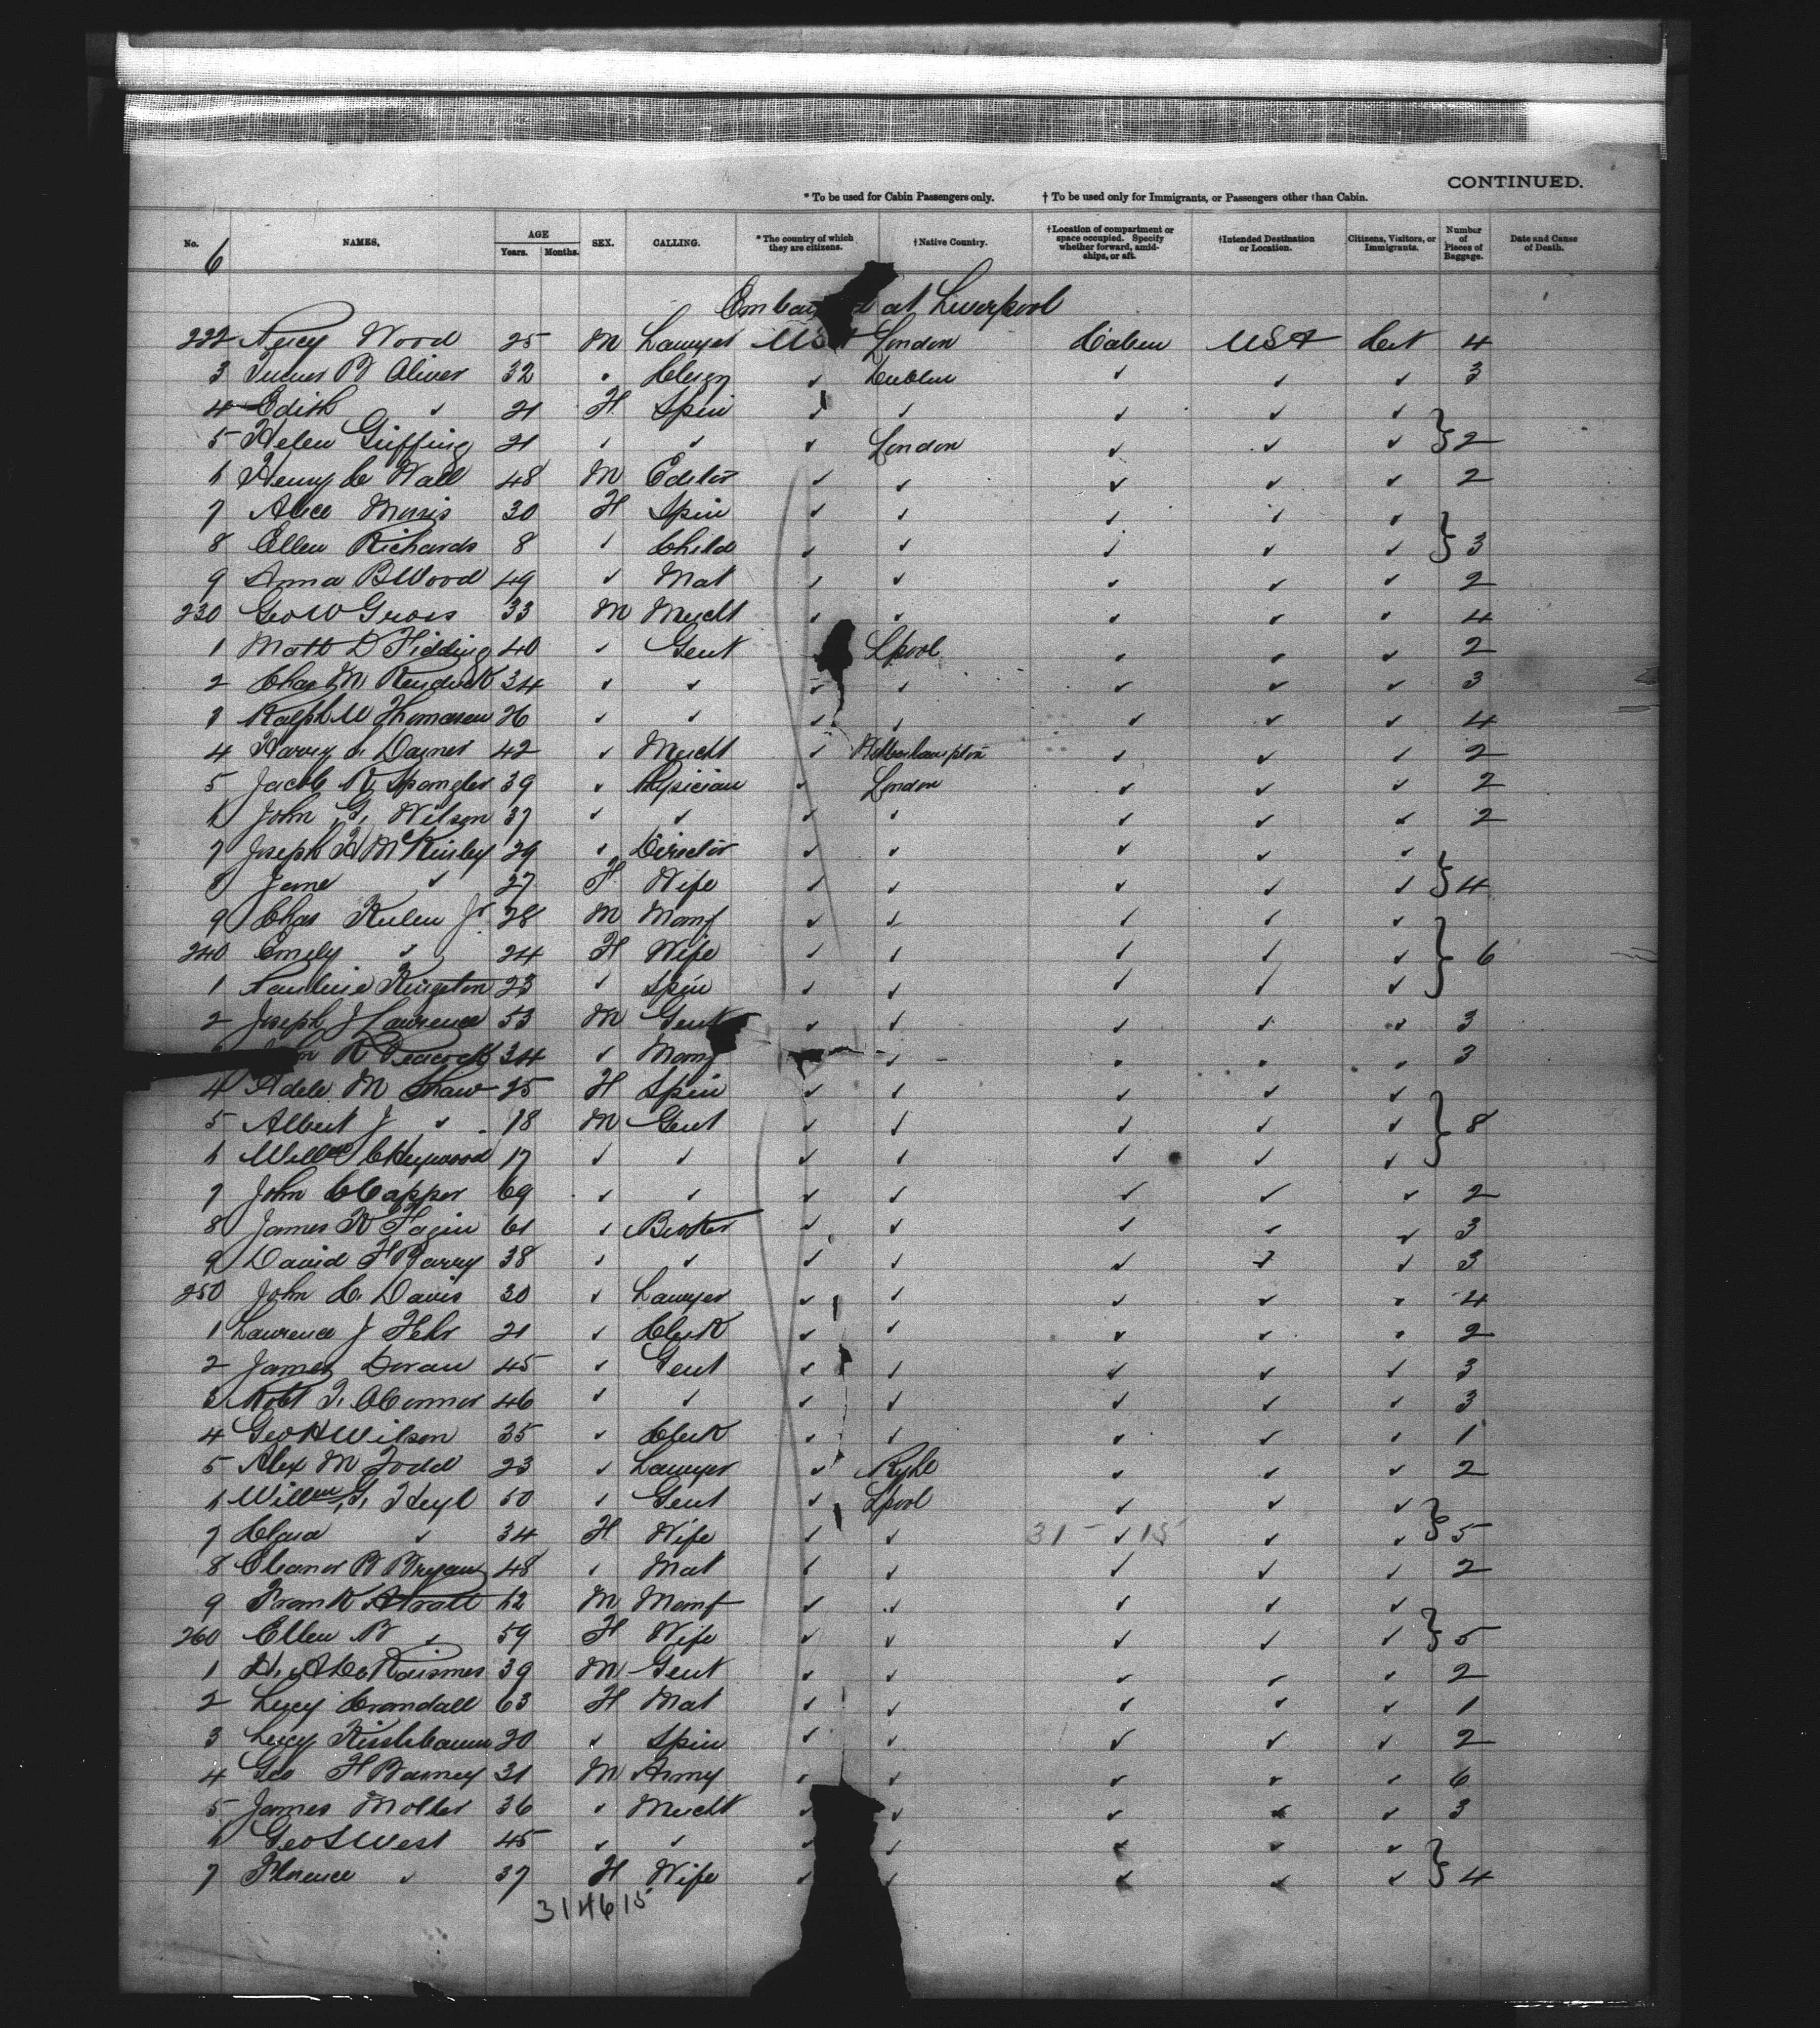 CONTINUED.
* To be used for Cabin Passengers only. † To be used only for Immigrants, or Passengers other than Cabin.
No. NAMES. AGE Years. Months. SEX. CALLING. *The country of which they are citizens. †Native Country. †Location of compartment or space occupied. Specify whether forward, amidships, or aft. †Intended Destination or Location. Citizens, Visitors, or Immigrants. Number of Pieces of Baggage. Date and Cause of Death.
6
at Liverpool
222 Wood 25 M Lawyer London Cabin USA Cit 4
3 Oliver 32 " Clergn ✓ Dublin ✓ ✓ ✓ 3
4 Edith ✓ 21 F Spin ✓ ✓ ✓ ✓ ✓
5 Helen Griffing 21 ✓ ✓ ✓ London ✓ ✓ ✓ } 2
6 Henry C Wall 48 M Editor ✓ ✓ ✓ ✓ ✓ 2
7 Alice Morris 30 F Spin ✓ ✓ ✓ ✓ ✓
8 Ellen Richards 8 ✓ Child ✓ ✓ ✓ ✓ ✓ } 3
9 Anna B Wood 49 ✓ Mat ✓ ✓ ✓ ✓ ✓ 2
230 Geo W Gross 33 M Mercht ✓ ✓ ✓ ✓ ✓ 4
1 Matt D Fidding 40 ✓ Gent Lpool ✓ ✓ ✓ 2
2 Chas M Kendrick 34 ✓ ✓ ✓ ✓ ✓ ✓ ✓ 3
3 Ralph W Thomasen 26 ✓ ✓ ✓ ✓ ✓ ✓ ✓ 4
4 Harry 42 ✓ Mercht ✓ ✓ ✓ ✓ 2
5 Jacob Spangler 39 ✓ Physician ✓ London ✓ ✓ ✓ 2
6 John G. Wilson 37 ✓ ✓ ✓ ✓ ✓ ✓ ✓ 2
7 Joseph McKinley 29 ✓ Director ✓ ✓ ✓ ✓ ✓
8 Jane ✓ 27 F Wife ✓ ✓ ✓ ✓ ✓ } 4
9 Chas Jr. 28 M Manf ✓ ✓ ✓ ✓ ✓
240 Emily ✓ 24 F Wife ✓ ✓ ✓ ✓ ✓ } 6
1 Pauline Kingston 23 ✓ Spin ✓ ✓ ✓ ✓ ✓
2 Joseph J Lawrence 53 M Gent ✓ ✓ ✓ ✓ ✓ 3
R Peacock 34 ✓ Manf ✓ ✓ ✓ ✓ 3
4 Adele M Shaw 25 F Spin ✓ ✓ ✓ ✓ ✓
5 Albert J ✓ 18 M Gent ✓ ✓ ✓ ✓ ✓ } 8
6 Willm C Heywood 17 ✓ ✓ ✓ ✓ ✓ ✓ ✓
7 John C Capper 69 ✓ ✓ ✓ ✓ ✓ ✓ ✓ 2
8 James Fagin 61 ✓ Broker ✓ ✓ ✓ ✓ ✓ 3
9 David F Barry 38 ✓ ✓ ✓ ✓ ✓ ✓ ✓ 3
250 John C. Davis 30 ✓ Lawyer ✓ ✓ ✓ ✓ ✓ 4
1 Lawrence J Fehr 21 ✓ Clerk ✓ ✓ ✓ ✓ ✓ 2
2 James Doran 45 ✓ Gent ✓ ✓ ✓ ✓ ✓ 3
3 Robt T. OConnor 46 ✓ ✓ ✓ ✓ ✓ ✓ ✓ 3
4 Geo H Wilson 35 ✓ Clerk ✓ ✓ ✓ ✓ ✓ 1
5 Alex M Todd 23 ✓ Lawyer ✓ Ryhl ✓ ✓ ✓ 2
6 Willm G. Heyl 50 ✓ Gent ✓ Lpool ✓ ✓ ✓
7 Clara ✓ 34 F Wife ✓ ✓ 31 - ✓ 15 ✓ ✓ } 5
8 Eleanor B Bryan 48 ✓ Mat ✓ ✓ ✓ ✓ ✓ 2
9 Frank A Pratt 62 M Manf ✓ ✓ ✓ ✓ ✓
260 Ellen B ✓ 59 F Wife ✓ ✓ ✓ ✓ ✓ } 5
1 39 M Gent ✓ ✓ ✓ ✓ ✓ 2
2 Lucy Crandall 63 F Mat ✓ ✓ ✓ ✓ ✓ 1
3 Lucy 20 ✓ Spin ✓ ✓ ✓ ✓ ✓ 2
4 Geo F Barney 31 M Army ✓ ✓ ✓ ✓ ✓ 6
5 James Moller 36 ✓ Mercht ✓ ✓ ✓ ✓ ✓ 3
6 Geo S West 45 ✓ ✓ ✓ ✓ ✓ ✓ ✓
7 Florence ✓ 37 F Wife ✓ ✓ ✓ ✓ ✓ } 4
31 46 15